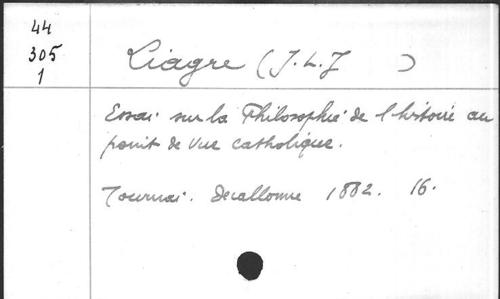 44
305
1
Liagre (J.L.J )
Essai sur la Philosophie de l'histoire au
point de vue catholique.
Tournai. Decallonne 1882. 16.